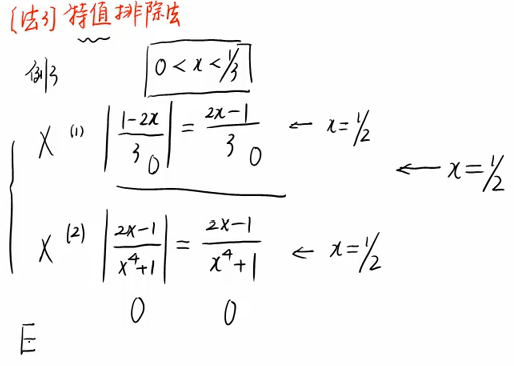 [法3] 特值排除法
例3 0 < x < 1/3
X (1) |(1-2x)/3| = (2x-1)/3 ← x = 1/2
0 0
← x = 1/2
X (2) |(2x-1)/(x⁴+1)| = (2x-1)/(x⁴+1) ← x = 1/2
0 0
E